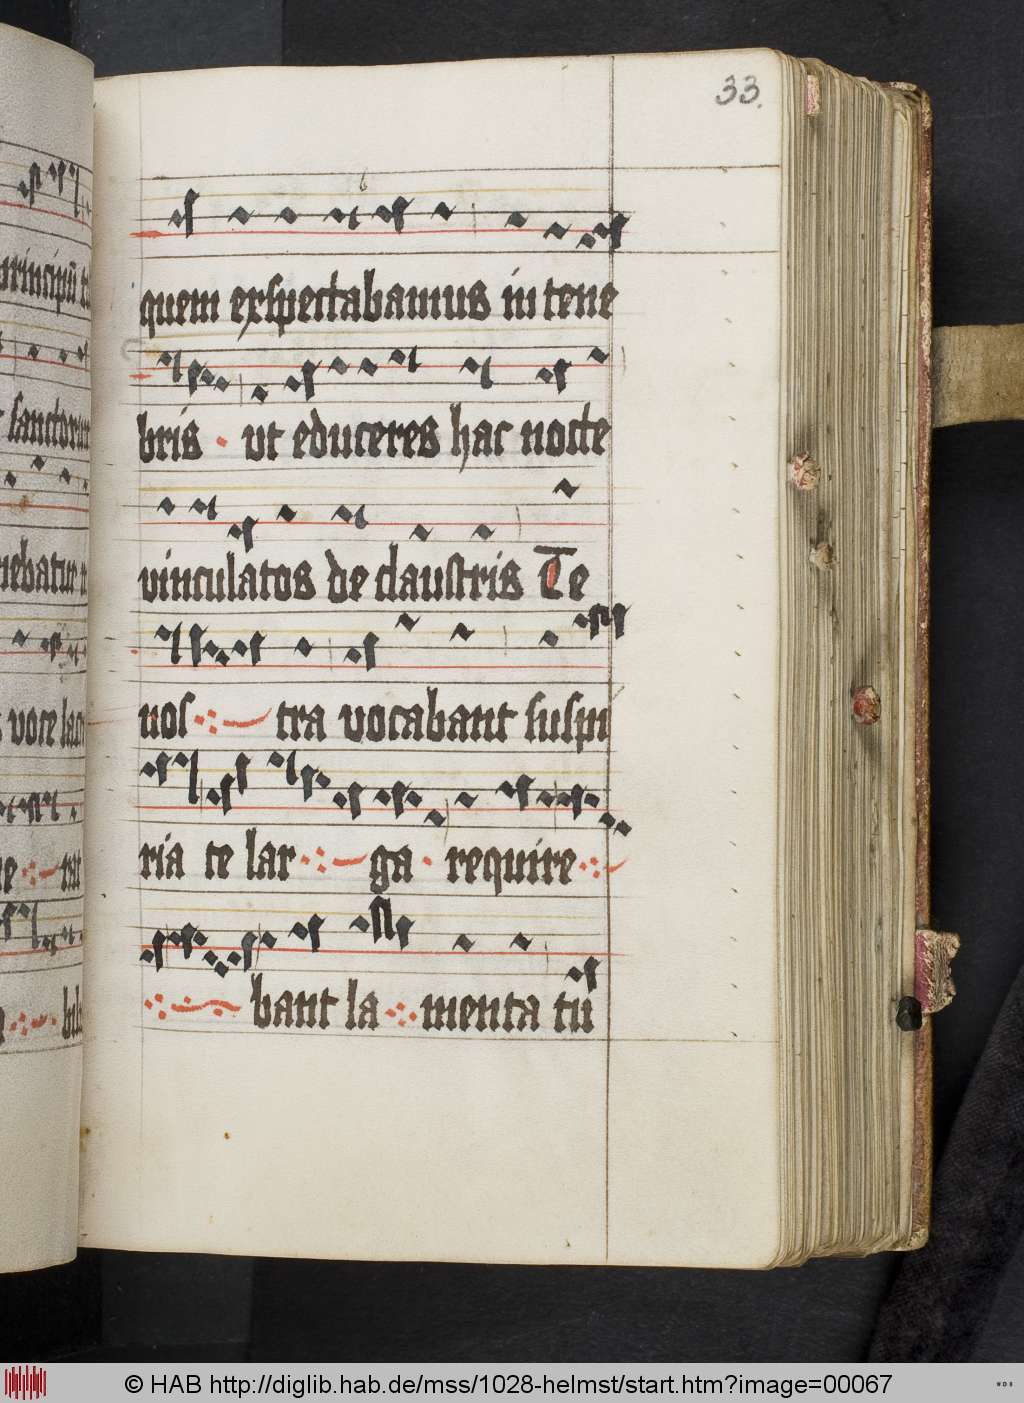 33.
quem exspectabamus in tene
bris · ut educeres hac nocte
vinculatos de claustris Te
nos tra vocabant suspi
ria te lar ga · require
bant la menta tu
principũ
sanctorum
iebatur
voce
© HAB http://diglib.hab.de/mss/1028-helmst/start.htm?image=00067